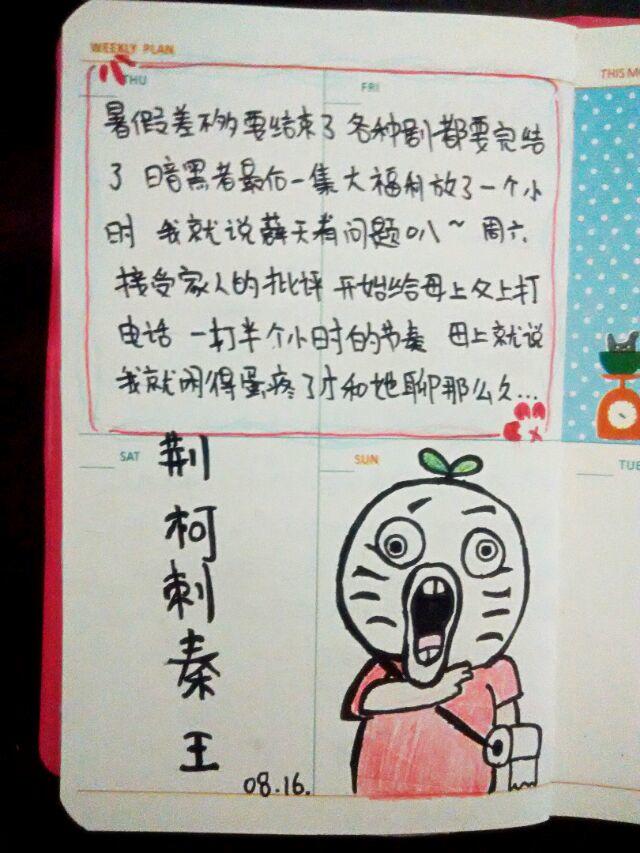 WEEKLY PLAN
THU
FRI
THIS MO
暑假差不多要结束了 各种剧都要完结
了 暗黑者最后一集大福利放了一个小
时 我就说薛天有问题叭~ 周六
接受家人的批评 开始给母上父上打
电话 一打半个小时的节奏 母上就说
我就闲得蛋疼了才和她聊那么久...
SAT
SUN
TUE
荆
柯
刺
秦
王
08.16.